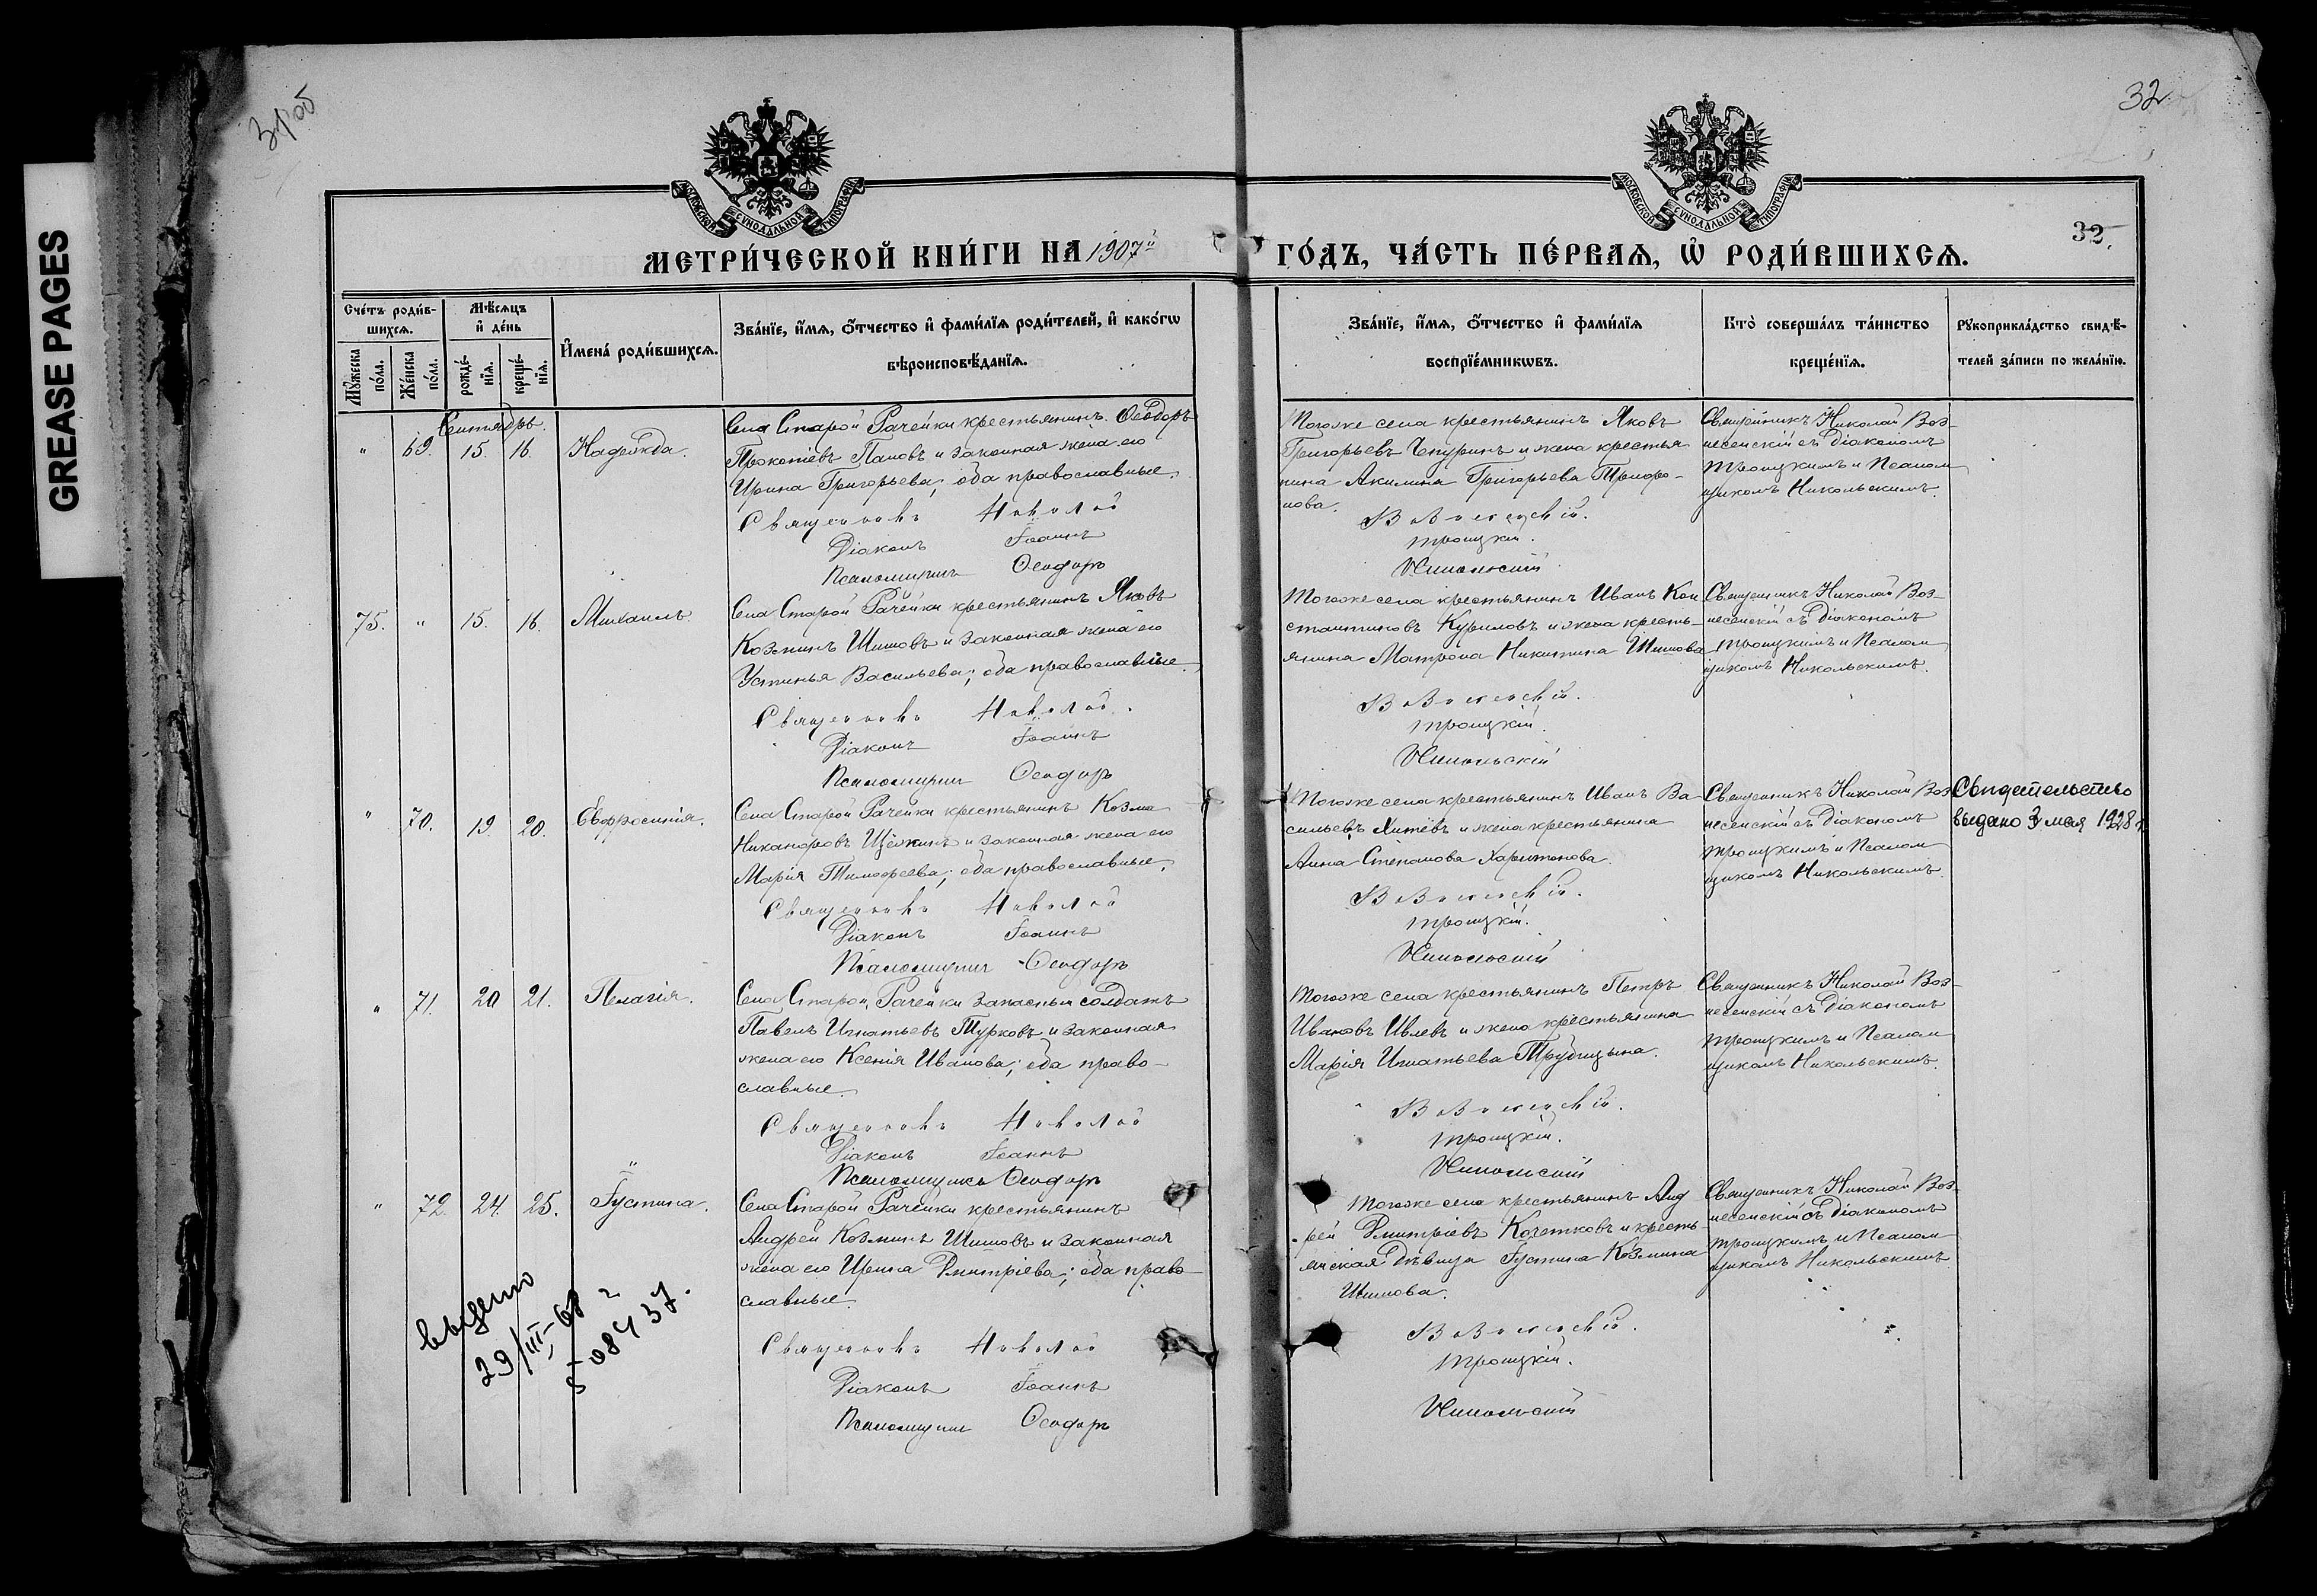 GREASE PAGES
31об
32
32.
МОСКОВСКОЙ СУНОДАЛЬНОЙ ТИПОГРАФІИ
МОСКОВСКОЙ СУНОДАЛЬНОЙ ТИПОГРАФІИ
МЕТРИ́ЧЕСКОЙ КНИ́ГИ НА 1907й ГО́ДЪ, ЧА́СТЬ ПЕ́РВАѦ, Ѡ҆ РОДИ́ВШИХСѦ.
Сче́тъ роди́в-
шихсѧ.
Мꙋ́жеска по́ла.
Же́нска по́ла.
Мѣ́сѧцъ
и҆ де́нь
рожде́-
нїѧ.
креще́-
нїѧ.
И҆мена̀ роди́вшихсѧ.
Зва́нїе, и҆́мѧ, ѻ҆́тчество и҆ фами́лїѧ роди́телей, и҆ како́гѡ
вѣроисповѣ́данїѧ.
Зва́нїе, и҆́мѧ, ѻ҆́тчество и҆ фами́лїѧ
воспрїе́мникѡвъ.
Кто̀ соверша́лъ та́инство
креще́нїѧ.
Рꙋкоприкла́дство свидѣ́-
телей за́писи по жела́нїю.
Сентябрь.
" 69. 15. 16. Надежда.
Села Старой Рачейки крестьянинъ Ѳеодоръ
Прокопіевъ Пановъ и законная жена его
Ирина Григорьева; оба православные.
Священникъ Николай
Діаконъ Іоаннъ
Псаломщикъ Ѳеодоръ
Тогоже села крестьянинъ Яковъ
Григорьевъ Чпуринъ и жена крестья
нина Акилина Григорьева Трифо-
нова.
Вознесенскій.
Троицкій.
Никольскій
Священникъ Николай Воз-
несенскій съ Діакономъ
Троицкимъ и Псалом
щикомъ Никольскимъ.
75. " 15. 16. Михаилъ.
Села Старой Рачейки крестьянинъ Яковъ
Козминъ Шишовъ и законная жена его
Устинья Васильева; оба православные.
Священникъ Николай.
Діаконъ Іоаннъ
Псаломщикъ Ѳеодоръ
Тогоже села крестьянинъ Иванъ Кон
стантиновъ Куриловъ и жена кресть-
янина Матрона Никитина Шишова
Вознесенскій.
Троицкій.
Никольскій
Священникъ Николай Воз-
несенскій съ Діакономъ
Троицкимъ и Псалом
щикомъ Никольскимъ.
" 70. 19. 20. Евфросинія.
Села Старой Рачейки крестьянинъ Козма
Никаноровъ Щелкинъ и законная жена его
Марія Тимофеева; оба православные.
Священникъ Николай
Діаконъ Іоаннъ
Псаломщикъ Ѳеодоръ
Тогоже села крестьянинъ Иванъ Ва
сильевъ и жена крестьянина
Анна Степанова Харитонова.
Вознесенскій.
Троицкій.
Никольскій
Священникъ Николай Воз
несенскій съ Діакономъ
Троицкимъ и Псалом
щикомъ Никольскимъ.
Свидетельство
выдано 3 мая 1928 г.
" 71. 20 21. Пелагія.
Села Старой Рачейки запасный солдатъ
Павелъ Игнатьевъ Турковъ и законная
жена его Ксенія Иванова; оба право-
славные.
Священникъ Николай
Діаконъ Іоаннъ
Псаломщикъ Ѳеодоръ
Тогоже села крестьянинъ Петръ
Ивановъ Ивлевъ и жена крестьянина
Марія Игнатьева Трубицына.
Вознесенскій.
Троицкій.
Никольскій
Священникъ Николай Воз-
несенскій съ Діакономъ
Троицкимъ и Псалом
щикомъ Никольскимъ.
" 72. 24. 25. Іустина.
Села Старой Рачейки крестьянинъ
Андрей Козминъ Шишовъ и законная
жена его Ирина Дмитріева; оба право
славные.
Священникъ Николай
Діаконъ Іоаннъ
Псаломщикъ Ѳеодоръ
Тогоже села крестьянинъ Анд
рей Дмитріевъ Кочетковъ и кресть-
янская дѣвица Іустина Козмина
Шишова.
Вознесенскій.
Троицкій.
Никольскій
Священникъ Николай Воз-
несенскій съ Діакономъ
Троицкимъ и Псалом
щикомъ Никольскимъ.
29/III-68 г